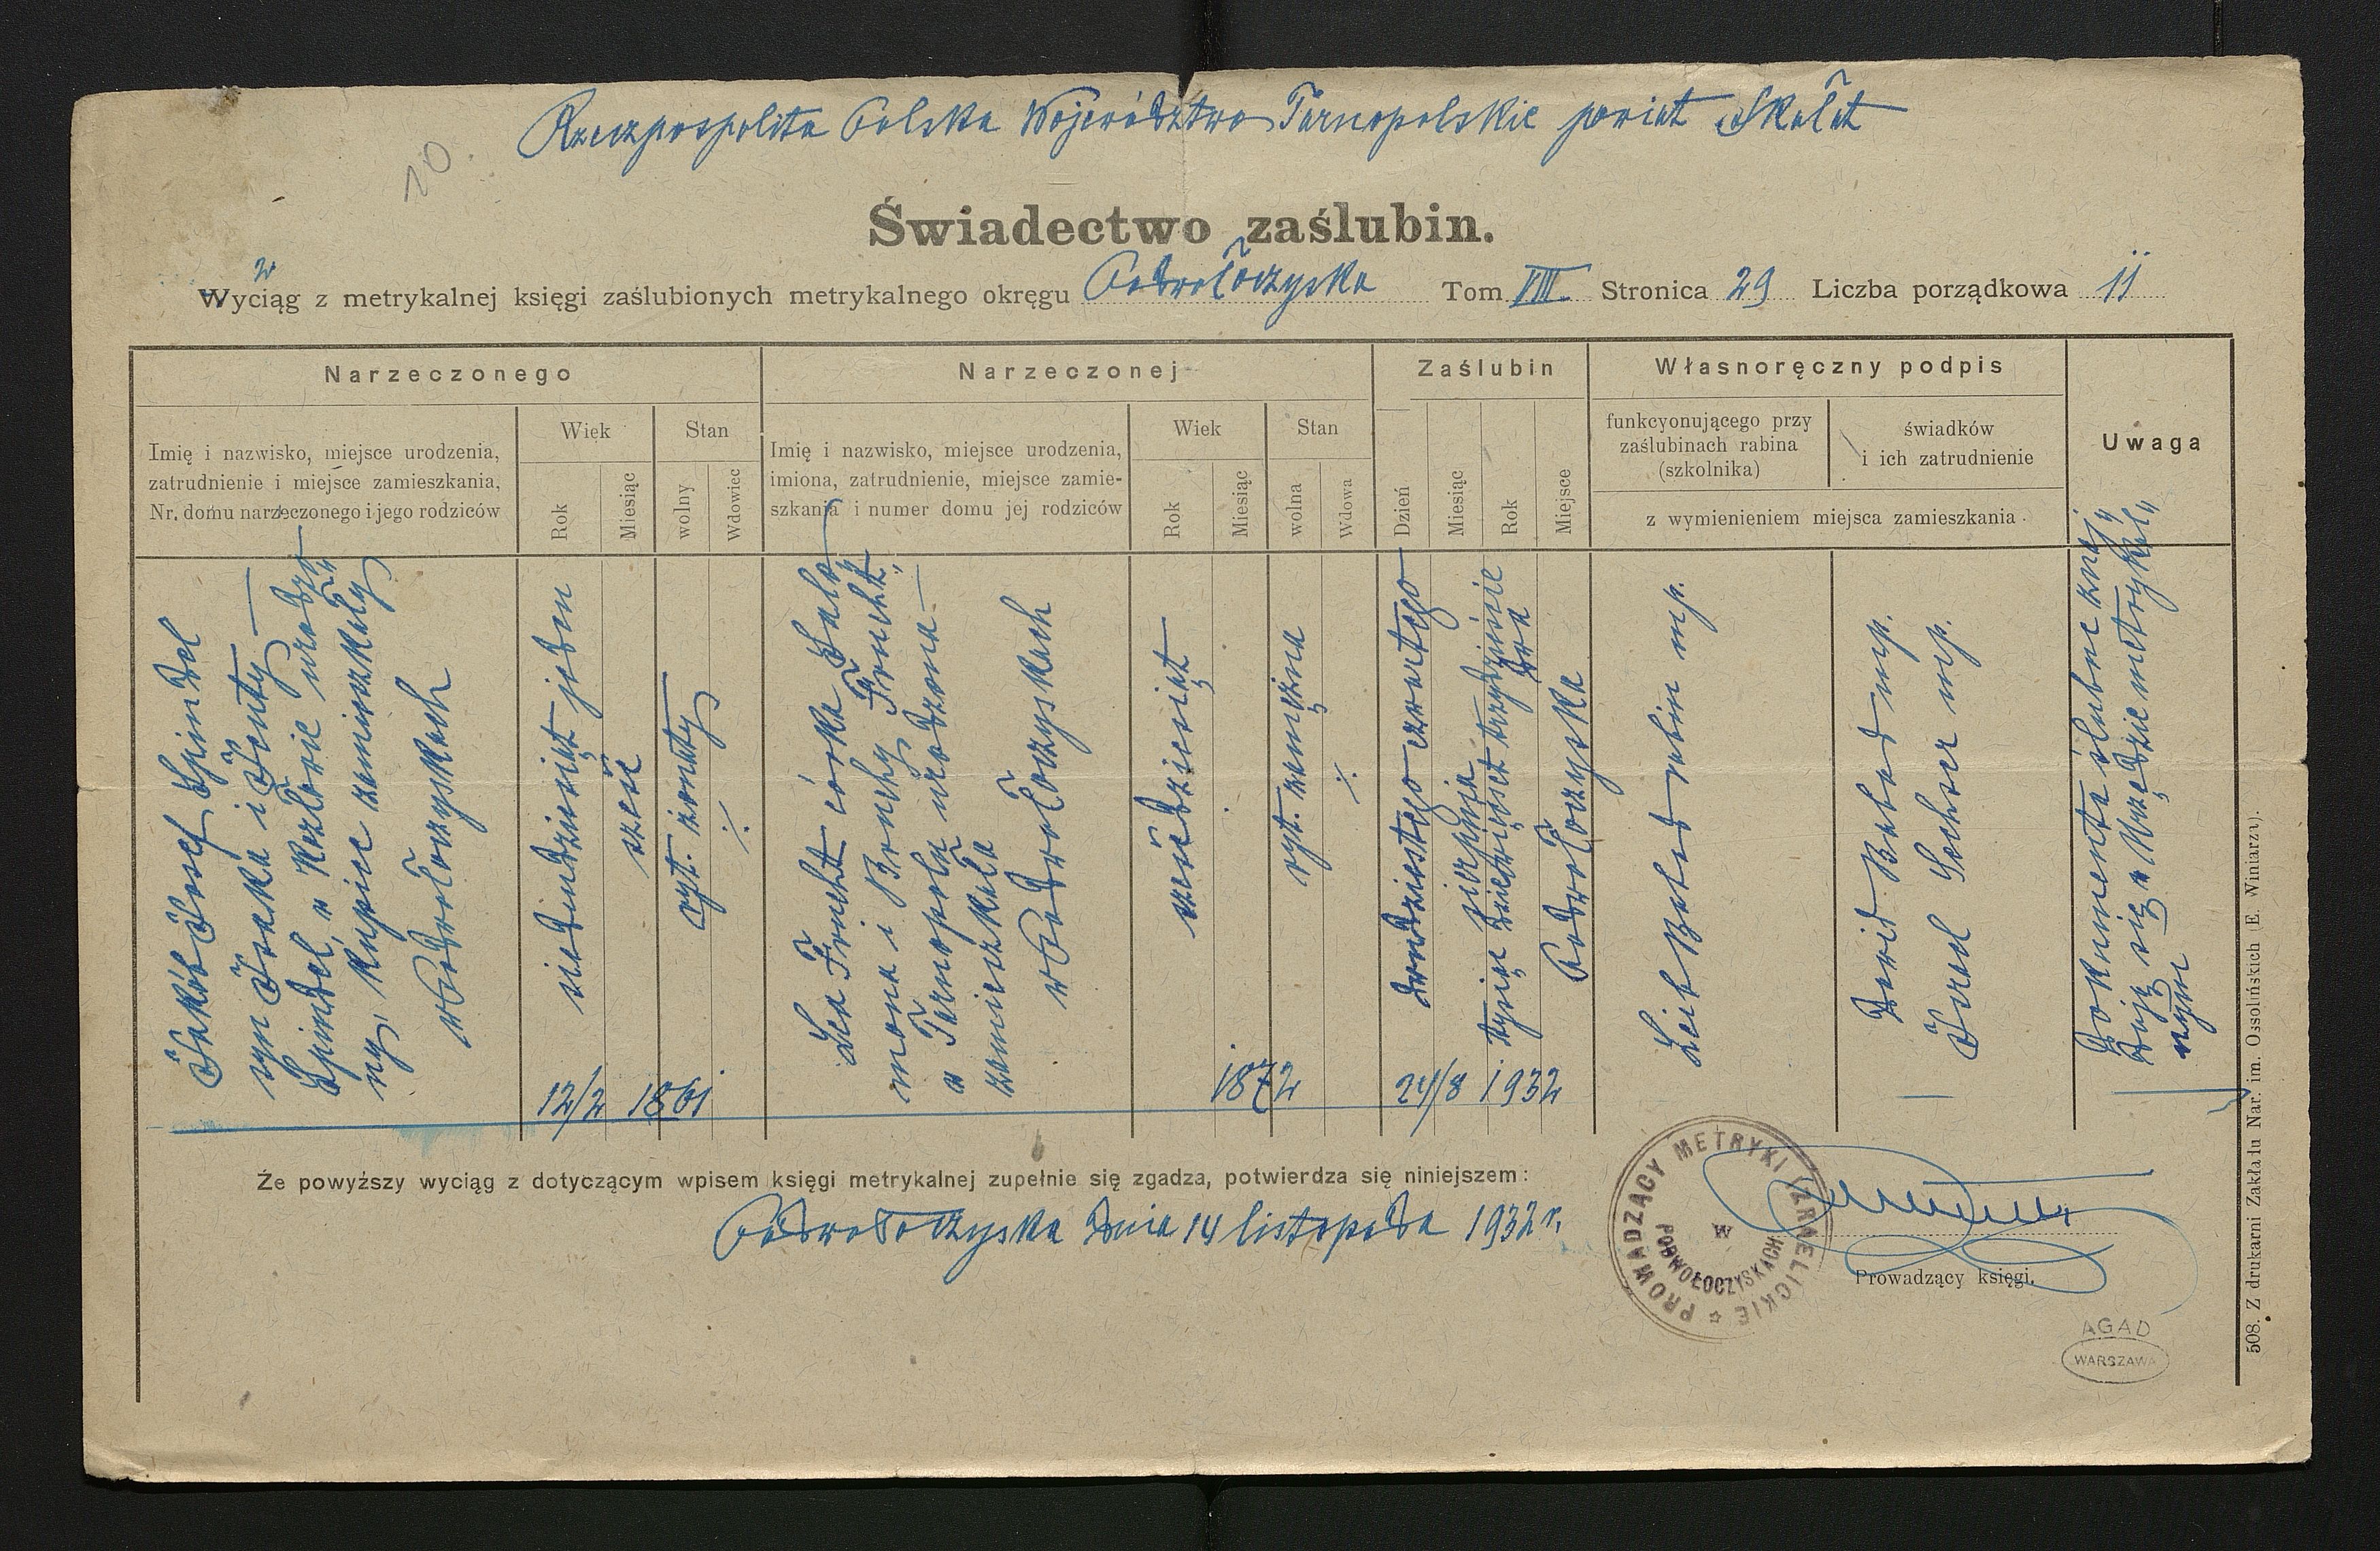 10.
Rzeczpospolita Polska Województwo Tarnopolskie powiat Skałat
Świadectwo zaślubin.
w
Wyciąg z metrykalnej księgi zaślubionych metrykalnego okręgu Podwołoczyska Tom VIII. Stronica 29 Liczba porządkowa 11
Narzeczonego
Imię i nazwisko, miejsce urodzenia,
zatrudnienie i miejsce zamieszkania,
Nr. domu narzeczonego i jego rodziców
Wiek
Rok
Miesiąc
Stan
wolny
Wdowiec
Narzeczonej
Imię i nazwisko, miejsce urodzenia,
imiona, zatrudnienie, miejsce zamie-
szkania i numer domu jej rodziców
Wiek
Rok
Miesiąc
Stan
wolna
Wdowa
Zaślubin
Dzień
Miesiąc
Rok
Miejsce
Własnoręczny podpis
funkcyonującego przy
zaślubinach rabina
(szkolnika)
świadków
i ich zatrudnienie
z wymienieniem miejsca zamieszkania
Uwaga
Jakób Josef Spindel
syn Izaka i Jenty
Spindel, w Kozłowie urodzo
ny, kupiec zamieszkały
w Podwołoczyskach
siedmdziesiąt jeden
sześć
12/2 1861
ryt. żonaty
Lea Frucht córka Salo
mona i Brenhy Frucht
w Tarnopolu urodzona
zamieszkała
w Podwołoczyskach
sześćdziesiąt
1872
ryt. zamężna
dwudziestego czwartego
sierpnia
tysiąc dziewięćset trzydzieście
dwa
Podwołoczyska
24/8 1932
Leib Babad rabin mp.
Dawid Babad mp.
Izrael Sechser mp.
Dokumenta ślubne znaj
dują się w Urzędzie metrykal
nym
Że powyższy wyciąg z dotyczącym wpisem księgi metrykalnej zupełnie się zgadza, potwierdza się niniejszem:
Podwołoczyska dnia 14 listopada 1932 r.
PROWADZĄCY METRYKI IZRAELICKIE
W
PODWOŁOCZYSKACH
Prowadzący księgi.
AGAD
WARSZAWA
508. Z drukarni Zakładu Nar. im. Ossolińskich (E. Winiarza).